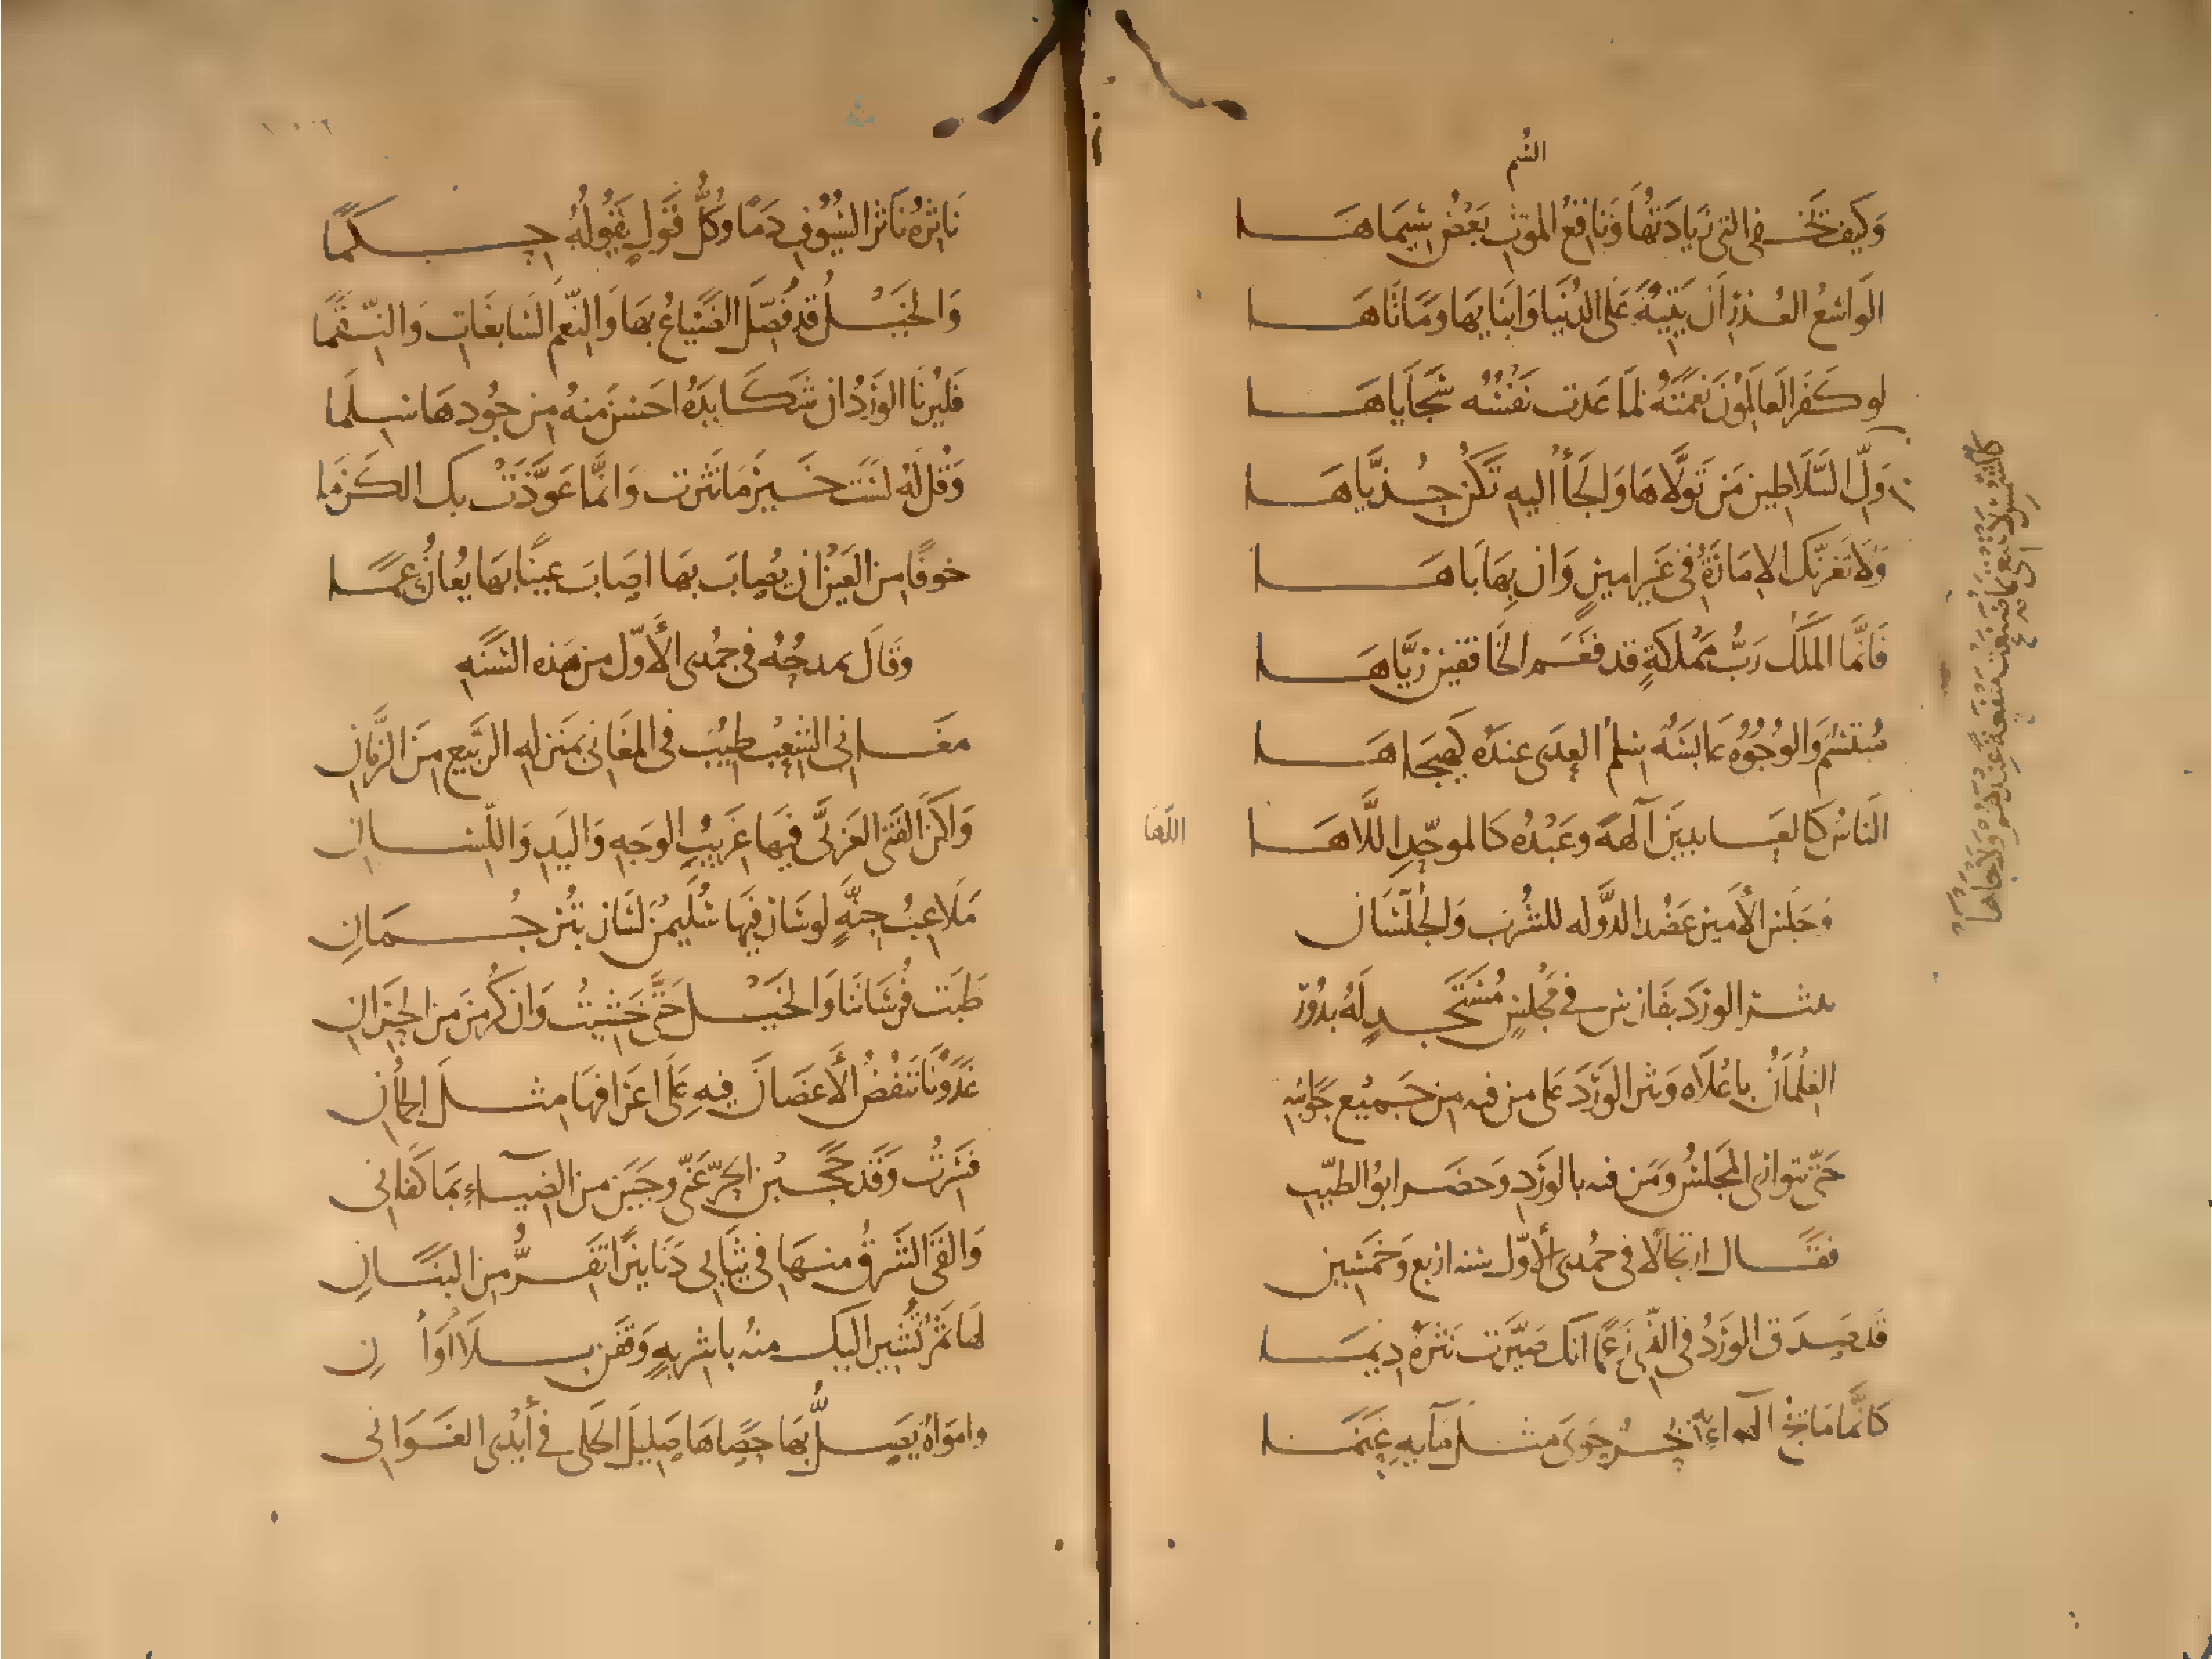 السُّم
وَكَيفَ تَخْفَى التي زِيَادَتُهَا وَنَاقِعُ المَوتِ بَعْضُ سِيمَاهَا
الوَاسِعُ العُذْرِ اَن يَتِيْهَ عَلَى الدُنْيَا وَابْنَايِهَا وَمَا تَاهَا
لو كَفَرَ العَالَمُوْنَ نِعْمَتَهُ لَمَا عَدَت نَفْسُهُ سَجَايَاهَا
كَالشَّمْسِ لا تَبْتَغِي بما صَنَعَتْ مَنْفَعَةً عِنْدَهُمْ وَلا جَاهَا
وَلِّ السَّلَاطِينَ مَن تَوَلَّاهَا وَالجَأْ اليهِ تَكُنْ حُدَيَّاهَا
وَلَا تَغُرَّنَّكَ الامَارَةُ في غَيرِ امِيرٍ وَان بِهَا بَاهَا
فَانَّمَا المَلْكُ رَبُّ مَمْلَكَةٍ قد فَغَمَ الخَافِقَينِ رَيَّاهَا
مُبْتَسِمٌ وَالوُجُوْهُ عَابِسَةٌ سِلمُ العِدَى عِندَهُ كَهَيجَاهَا
النَاسُ كَالعَابِدِينَ آلهةً وعَبْدُهُ كَالموحِّدِ اللَّاهَا
وَجَلَسَ الأَمير عَضُد الدَّوله للشُّرْب وَالجُلَّسَان
الوَرْدَ بفَارِس في مَجْلِسٍ مُسْتَحْدٍ لَهُ يدُوْرُ
الغِلْمَانُ بِاعْلَاه وَينثر الوَرْدَ عَلى من فيه من جَمِيْعِ جَوَانِبِه
حَتَّى يتوارى المَجْلِسُ وَمَن فيه بالوَرْدِ وَحَضَر ابُو الطَّيّبِ
فقَال ارتجَالًا في جُمْدى الأَوّل سَنه اربع وَخَمْسِين
قَد صَدَق الوَرْدُ في الذي زَعَمَا انَّك صَيَّرْت نَثْرَهُ دِيَمَا
كَانَّمَا مَائِجُ الهواءِ بِهِ بَحْرٌ حَوَى مثلَ مَآيهِ عَنَمَا
نَاثِرُهُ نَاثِرُ السُّيُوْفِ دَمًا وَكُلُّ قَولٍ يَقُولُهُ حِكَمَا
وَالخَيْلُ قد فَصَّلَ الضِّيَاعُ بهَا وَالنِّعَمَ السَّابِغَاتِ وَالنِّقَمَا
فَليُرِنَا الوَرْدُ ان شَكَا يَدَهُ احسَنَ مِنهُ مِن جُودِهَا سَلِمَا
وَقُل لَهُ لَسْتَ خَيرَ مَا نَثَرَت وَانَّمَا عَوَّذَتْ بِك الكَرَمَا
خوفًا مِن العَيْن ان يُصابَ بهَا اصَابَ عَينًا بهَا يُعَانُ عَمَا
وَقَالَ يمدحُهُ في جُمْدى الأَوّل من هَذه السَّنَهِ
مَغَانِي الشِعْبِ طِيبًا في المَغَانِي بمَنزِلَهِ الرَّبيعِ مِنَ الزَّمَانِ
وَلكنَّ الفَتَى العَرَبيَّ فِيهَا غَرِيبُ الوَجهِ وَاليَدِ وَاللِّسَانِ
مَلَاعِبُ جِنَّةٍ لو سَار فِيهَا سُلَيمَنٌ لَسَار بِتُرْجُمَانِ
طَبَت فُرْسَانَنَا وَالخَيْلَ حَتَّى خَشِيْتُ وَان كَرُمْنَ مِن الحِرَانِ
غَدَوْنَا تَنفُضُ الأَغصَانُ فيهِ عَلَى اعرَافِهَا مِثلَ الجُمَانِ
فَسِرْتُ وَقَد حَجَبْنَ الحرَّ عَنِّي وَجِبْنَ مِن الضِيَآءِ بِمَا كَفَانِي
وَالقَى الشَّرقُ مِنهَا في ثِيَابِي دَنَانِيرًا تَفِرُّ مِن البَنَانِ
لَهَا ثَمَرٌ تُشِيرُ اليكَ منهُ باشْرِبهٍ وَقَفْنَ بلَا اَوَانِ
وامْوَاهٌ يَصِلُّ بهَا حَصَاهَا صَلِيلَ الحَلْي في أَيْدِي الغَوَانِي